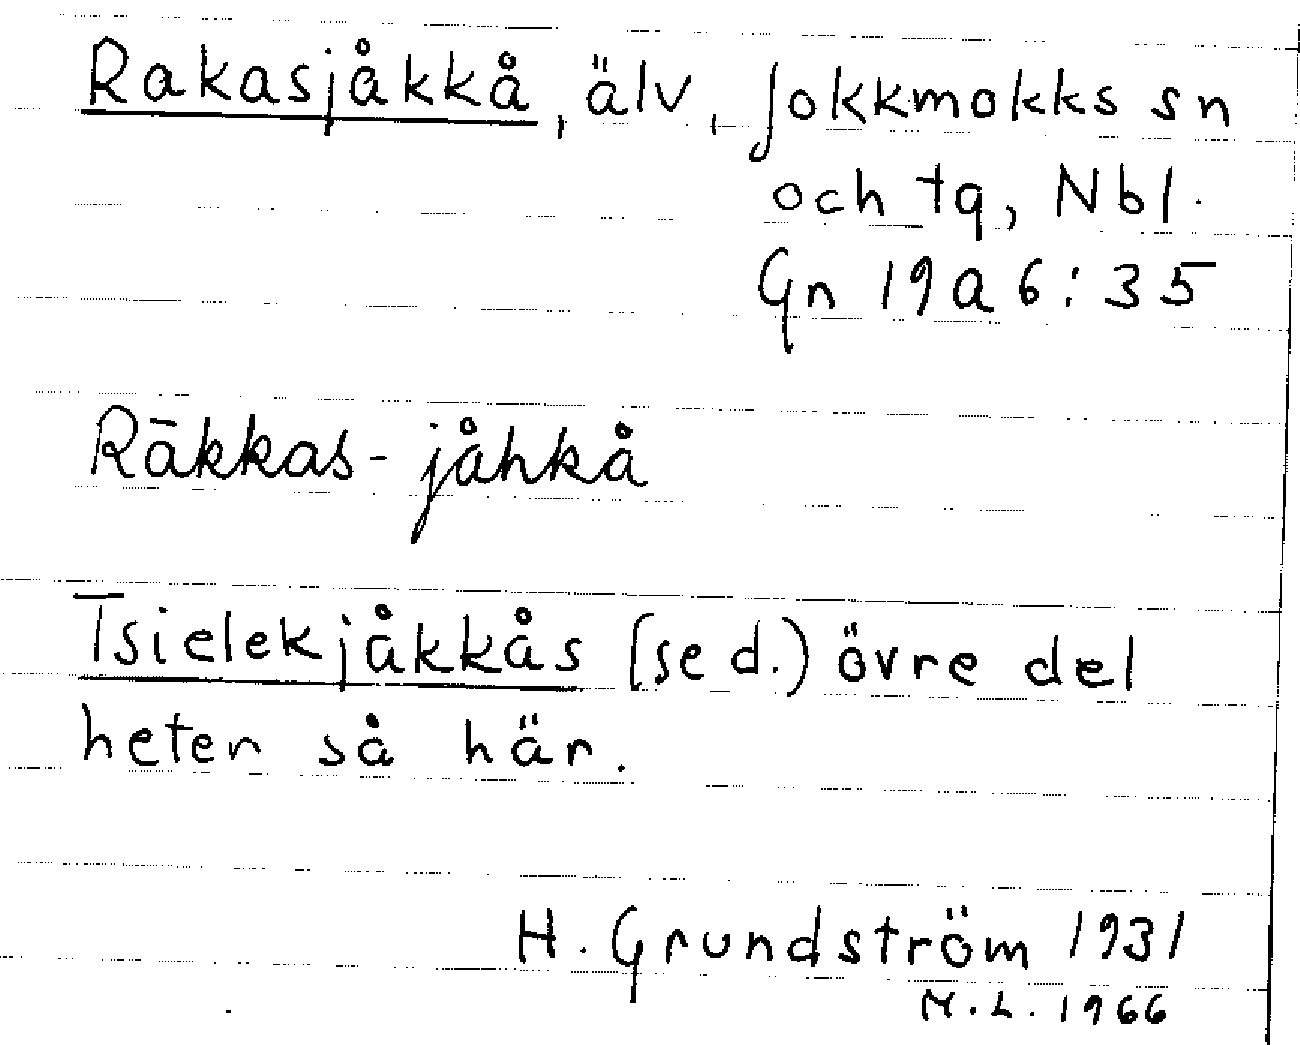 Rakasjåkkå, älv, Jokkmokks sn
och tg, Nbl.
Gn 19a 6:35
Rākkas-jåhkå
Tsielekjåkkås (se d.) övre del
heter så här.
H. Grundström 1931
M.L. 1966